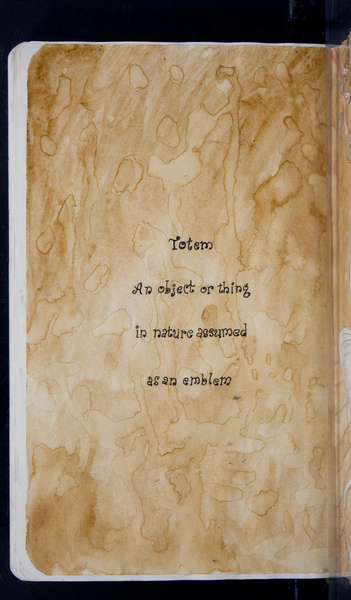 Totem
An object or thing
in nature assumed
as an emblem